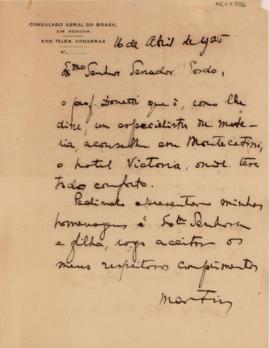 CONSULADO GERAL DO BRASIL
EM GENOVA
END. TELEG. CONSBRAS
Nº
16 de Abril de 1925
Exmo Senhor Senador Gordo,
o prof. Donetti que é, como lhe
disse, um especialista da mate-
ria, aconselha em Montecatini,
o hotel Victoria, onde terá
todo conforto.
Pedindo apresentar minhas
homenagens á Exma Senhora
e filha, rogo aceitar os
meus respeitosos cumprimentos
Martins